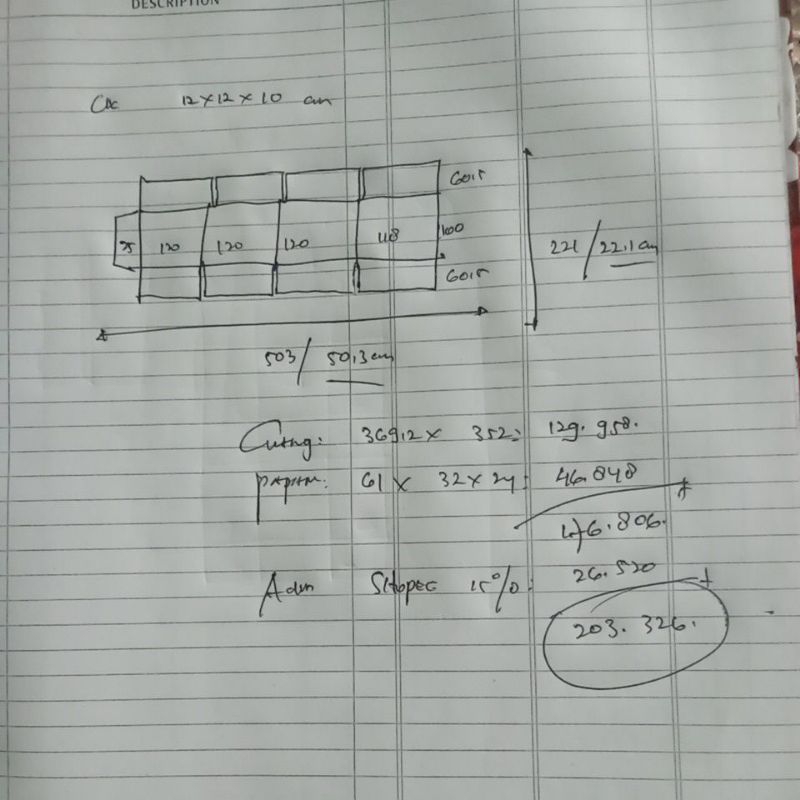 DESCRIPTION
12 x 12 x 10 cm
60,5
25 120 120 120 118 100
221 / 22,1 cm
60,5
503 / 50,3 cm
Cutting: 369,2 x 352 = 129.958.
61 x 32 x 24 : 46.848
+
176.806.
Adm Shopee 15% : 26.520
+
203.326.